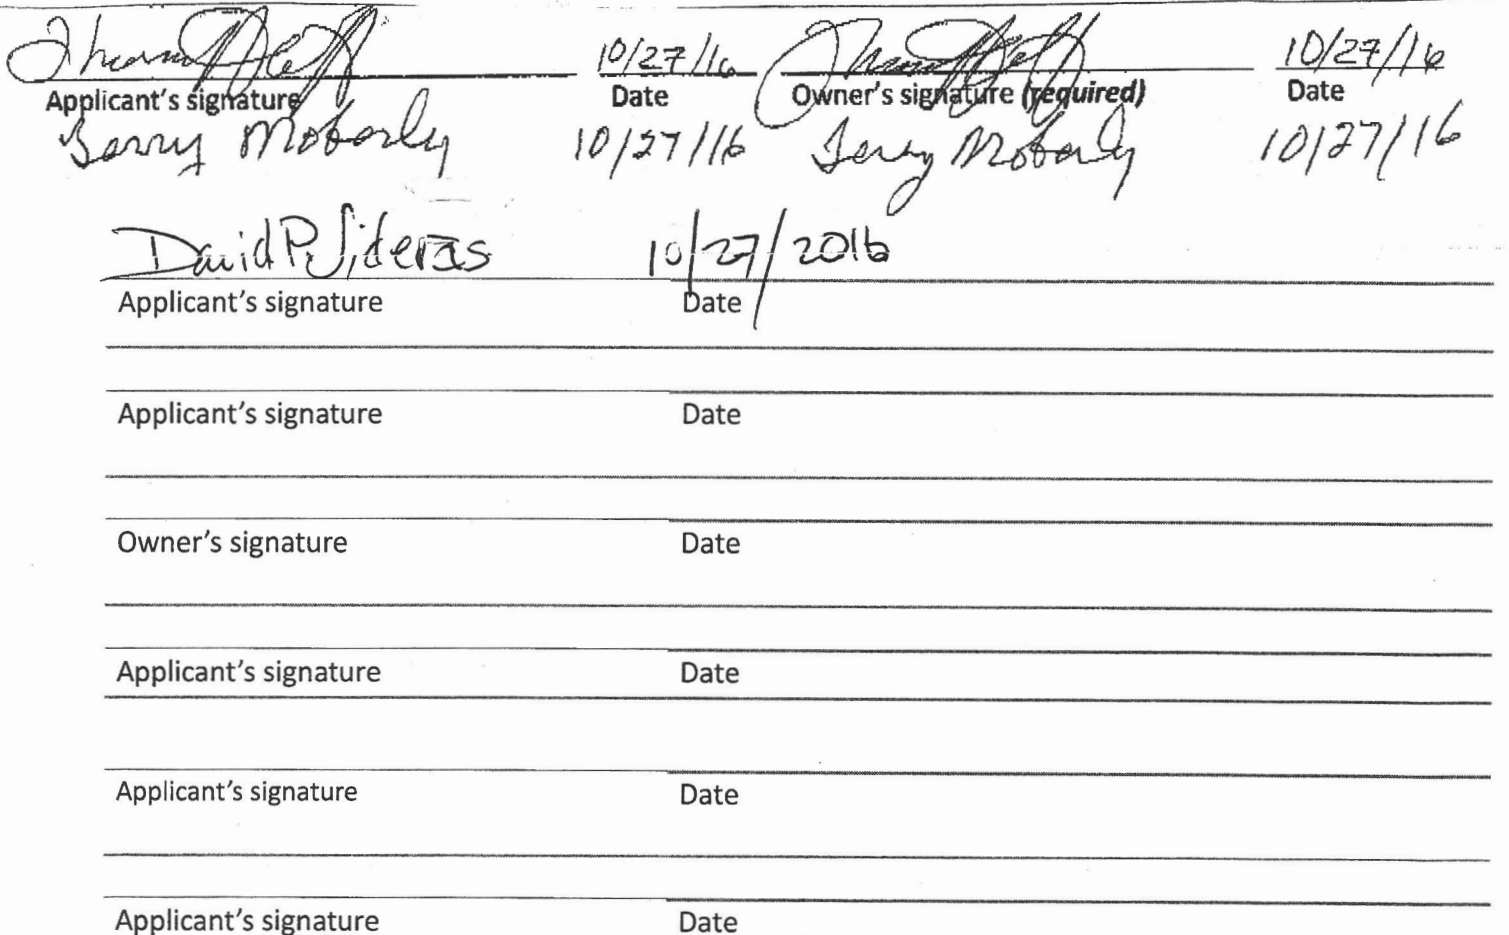 10/27/16 10/27/16
Applicant's signature Date Owner's signature (required) Date
Jerry Moberly 10/27/16 Jerry Moberly 10/27/16
David P. Sideras 10/27/2016
Applicant's signature Date
Applicant's signature Date
Owner's signature Date
Applicant's signature Date
Applicant's signature Date
Applicant's signature Date